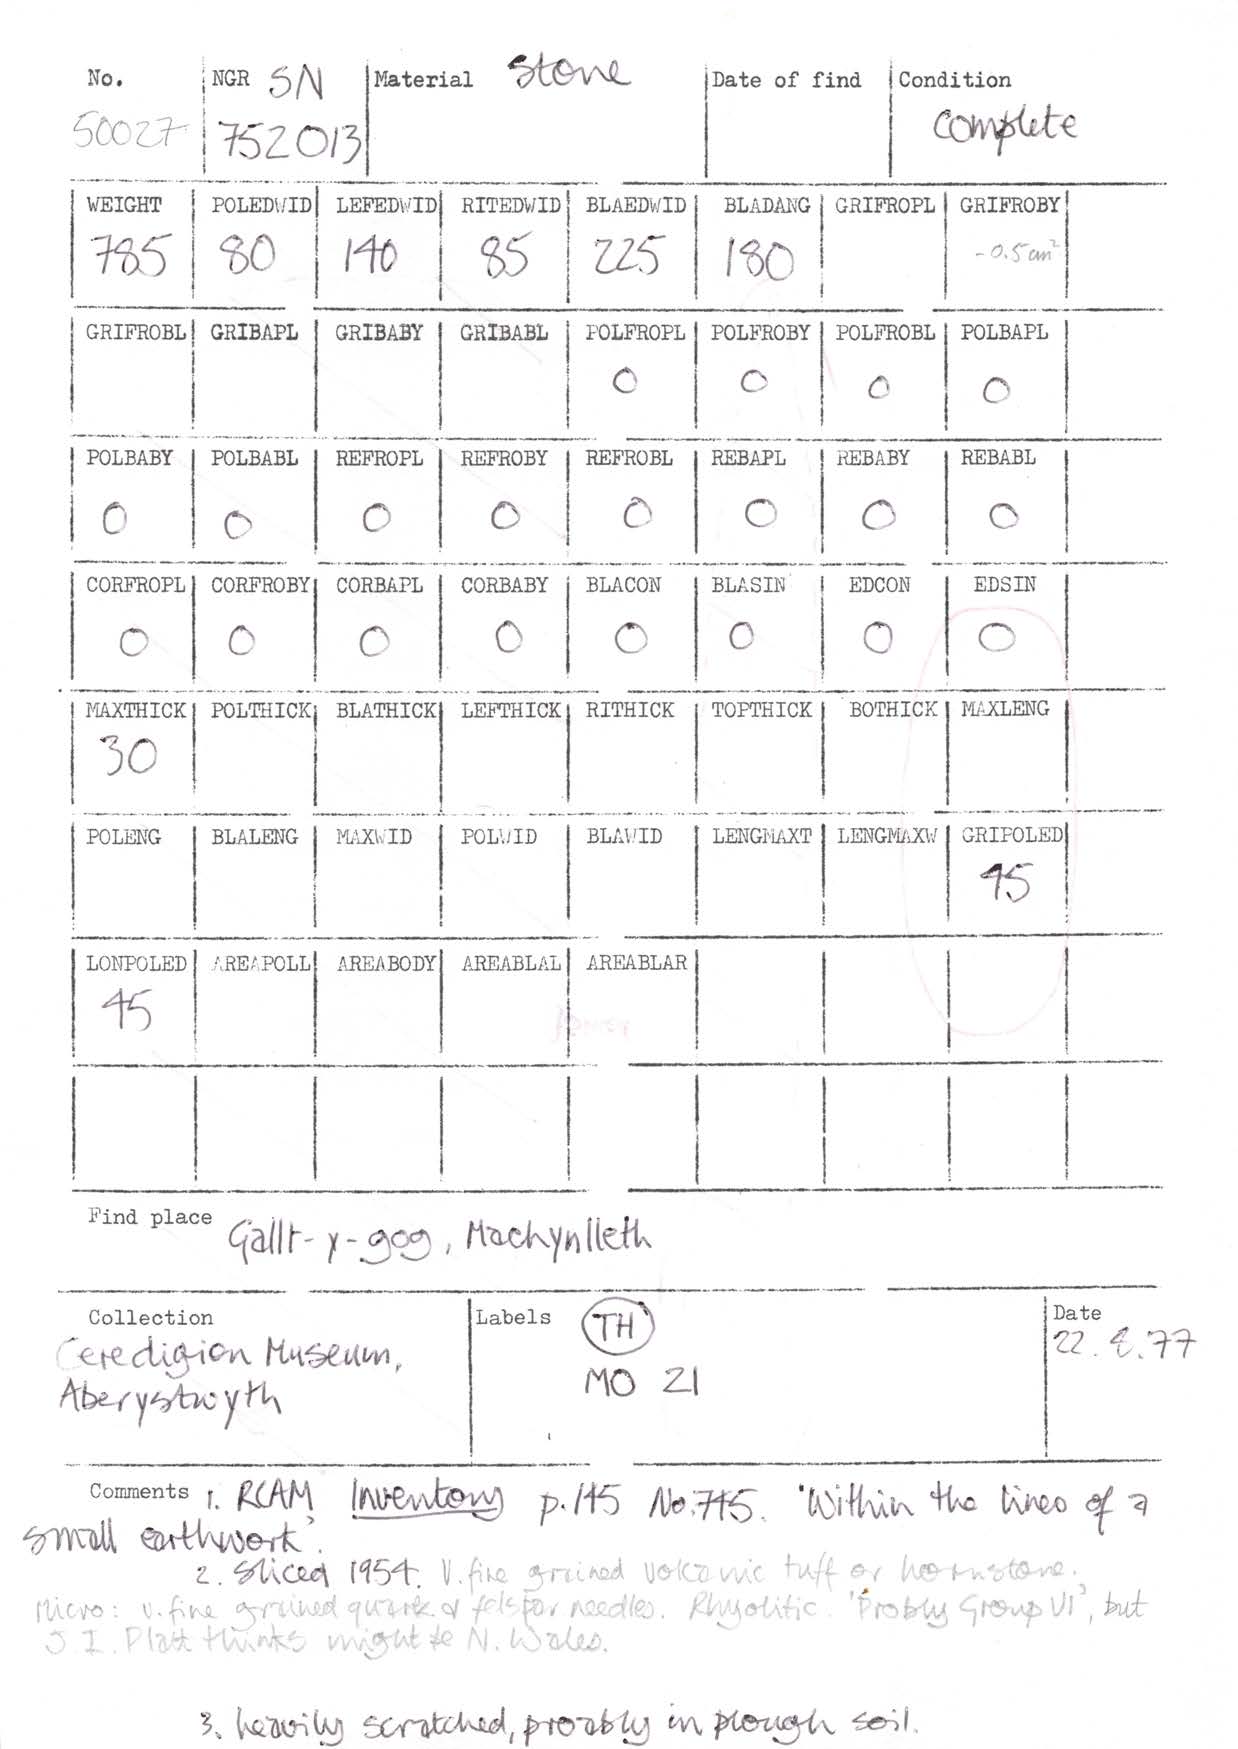 No. NGR SN Material Stone Date of find Condition
50027 752013 Complete
WEIGHT POLEDWID LEFEDWID RITEDWID BLAEDWID BLADANG GRIFROPL GRIFROBY
785 80 140 85 225 180 -0.5 cm²
GRIFROBL GRIBAPL GRIBABY GRIBABL POLFROPL POLFROBY POLFROBL POLBAPL
0 0 0 0
POLBABY POLBABL REFROPL REFROBY REFROBL REBAPL REBABY REBABL
0 0 0 0 0 0 0 0
CORFROPL CORFROBY CORBAPL CORBABY BLACON BLASIN EDCON EDSIN
0 0 0 0 0 0 0 0
MAXTHICK POLTHICK BLATHICK LEFTHICK RITHICK TOPTHICK BOTHICK MAXLENG
30
POLENG BLALENG MAXWID POLWID BLAWID LENGMAXT LENGMAXW GRIPOLED
45
LONPOLED AREAPOLL AREABODY AREABLAL AREABLAR
45
Find place Gallt-y-gog, Machynlleth
Collection Labels TH Date
Ceredigion Museum, MO 21 22.8.77
Aberystwyth
Comments 1. RCAM Inventory p.145 No.745. 'Within the lines of a
small earthwork'.
2. Sliced 1954. V.fine grained volcanic tuff or hornstone.
Micro: v.fine grained quark & felspar needles. Rhyolitic. 'Probly Group VI', but
J.I. Platt thinks might be N. Wales.
3. heavily scratched, proably in plough soil.